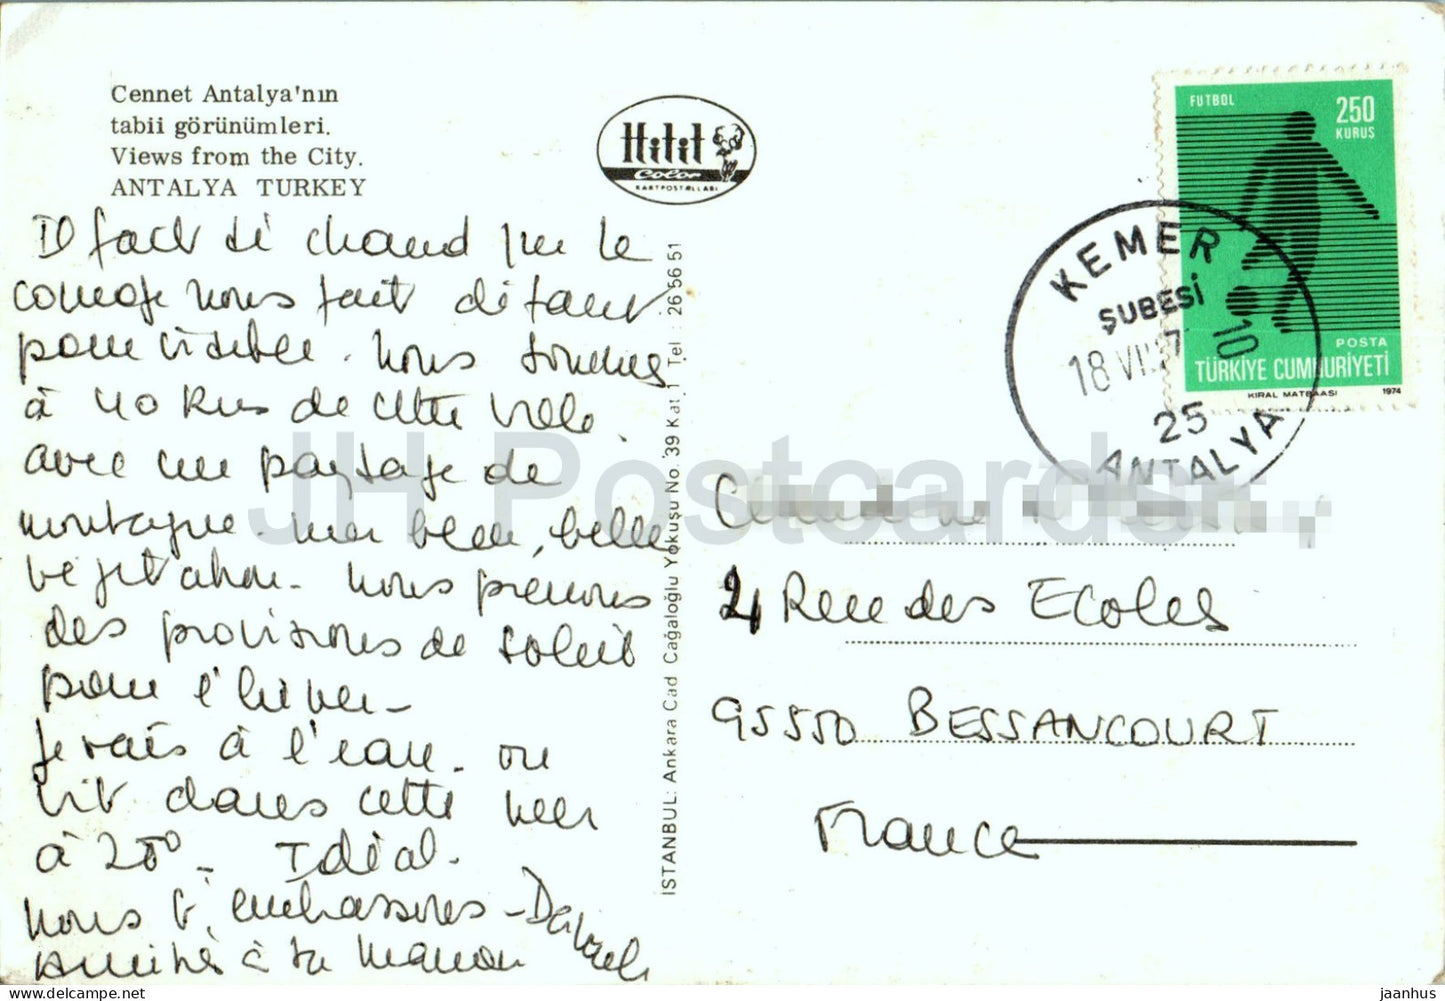 Cennet Antalya'nın
tabii görünümleri.
Views from the City.
ANTALYA TURKEY
Hitit
Color
KARTPOSTALLARI
FUTBOL
250
KURUS
POSTA
TÜRKİYE CUMHURİYETİ
KIRAL MATBAASI 1974
KEMER
ŞUBESİ
18 VII
10
25
ANTALYA
Il fait si chaud que le
courage nous fait défaut
pour visiter. Nous sommes
à 40 Kms de cette ville.
avec un paysage de
montagne. mer bleue, belle
végétation. Nous prenons
des provisions de soleil
pour l'hiver_
Je vais à l'eau. on
vit dans cette mer
à 28°_ Idéal.
Nous t'embrassons -
Amitiés à ta maman
ISTANBUL: Ankara Cad Cağaloğlu Yokuşu No. 39 Kat. 1 Tel : 26 56 51
24 Rue des Ecoles
95550 BESSANCOURT
France
JH Postcards
delcampe.net
jaanhus